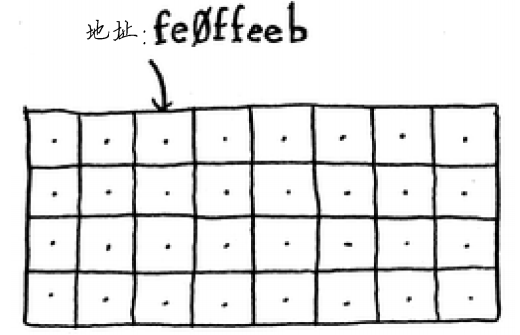 地址:feØffeeb